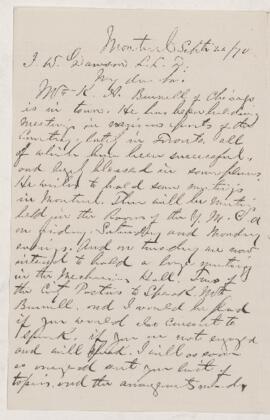 Montreal Sept 22/70
J. W. Dawson L.L.D.
My dear Sir
Mr K. A. Burnell of Chicago
is in town. He has been holding
meetings in various parts of the
Country, lately in Toronto all
of which have been successful,
and blessed in some places.
He wishes to hold some meetings
in Montreal. There will be meetings
held in the Rooms of the Y. M. C. A
on Friday, Saturday and Monday
evenings. And on Tuesday we now
intend to hold a large meeting
in the Mechanics Hall. Two of
the City Pastors to Speak with
Burnell. and I would be glad
if you would also consent to
Speak. if you are not engaged
and will speak I will as soon
as
topics and the arrangements made